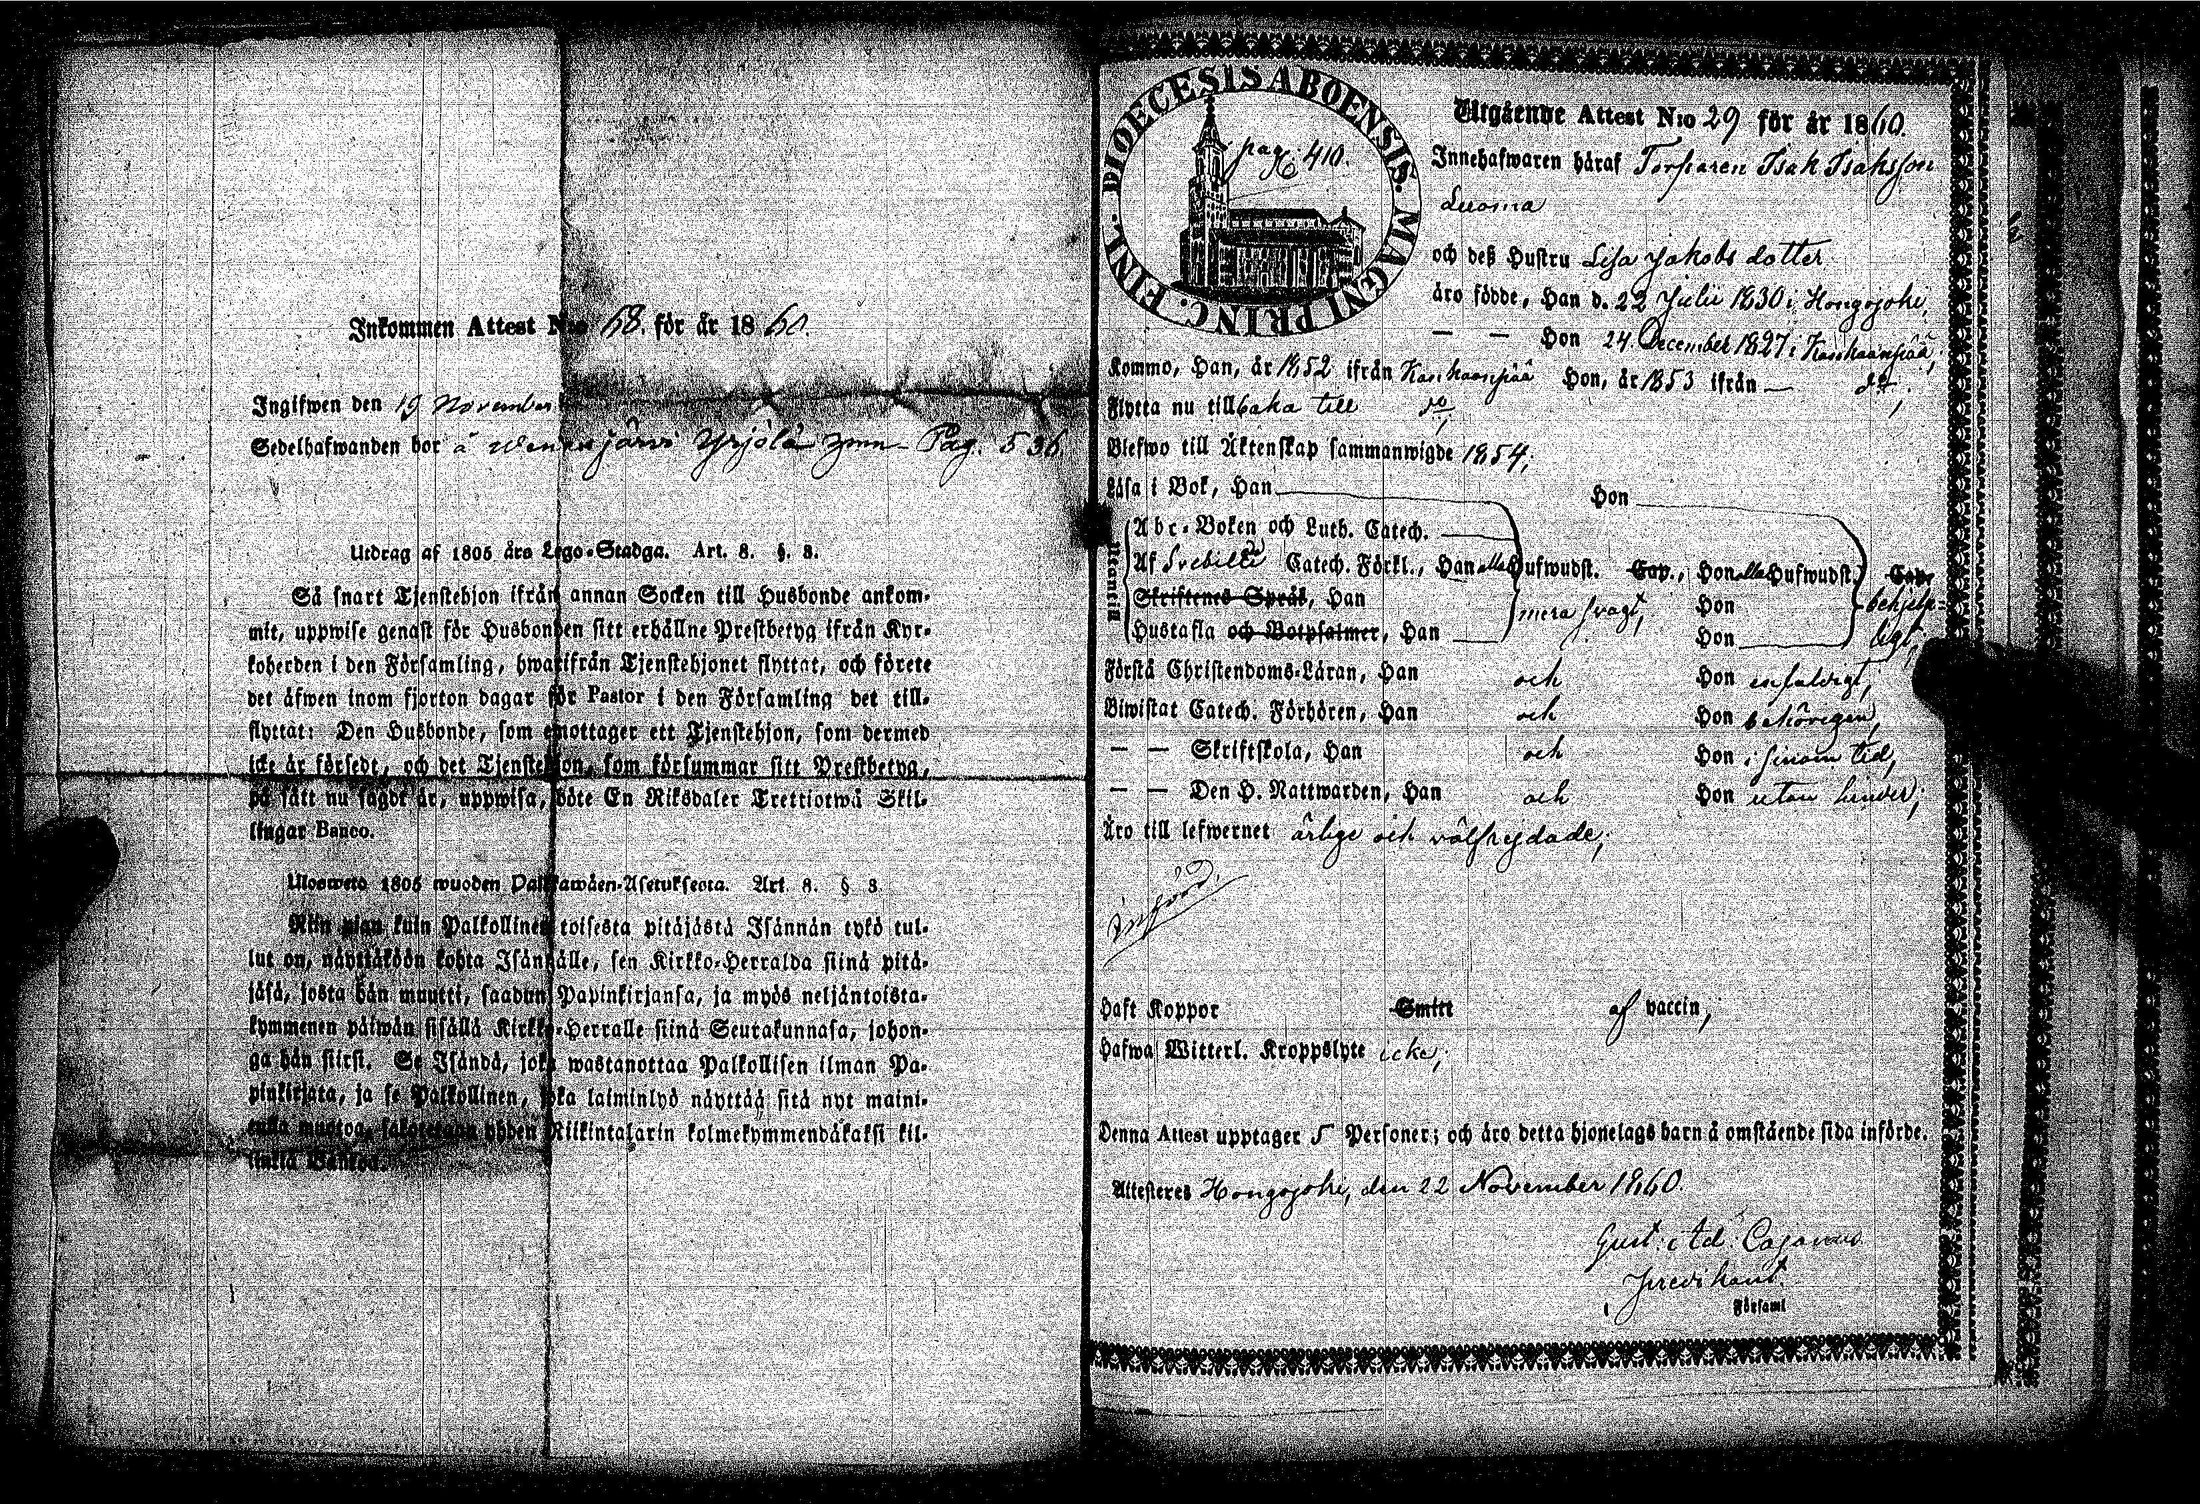 Inkommen Attest N:o 68. för år 1860.
Ingifwen den 19 November
Sedelhafwanden bor å Wenesjärwi Yrjölä Pag. 536
Utdrag af 1805 års Lego-Stadga. Art. 8. §. 8.
Så snart Tjenstehjon ifrån annan Socken till Husbonde ankom-
mit, uppwise genast för Husbonden sitt erhållne Prestbetyg ifrån Kyr-
koherden i den Församling, hwarifrån Tjenstehjonet flyttat, och förete
det äfwen inom fjorton dagar för Pastor i den Församling det till-
flyttat: Den Husbonde, som emottager ett Tjenstehjon, som dermed
icke är försedt, och det Tjenstehjon, som försummar sitt Prestbetyg,
på sätt nu sagdt är, uppwisa, böte En Riksdaler Trettiotwå Skil-
lingar Banco.
Ulosweto 1805 wuoden Palkkawäen-Asetuksesta. Art. 8. § 8
Niin pian kuin Palkollinen toisesta pitäjästä Isännän tykö tul-
lut on, näyttäköön kohta Isännälle, sen Kirkko-Herralda siinä pitä-
jäsä, josta hän muutti, saadun Papinkirjansa, ja myös neljäntoista-
kymmenen päiwän sisällä Kirkko-Herralle siinä Seurakunnasa, johon-
ga hän siirsi. Se Isändä, joka wastanottaa Palkollisen ilman Pa-
pinkirjata, ja se Palkollinen, joka laiminlyö näyttää sitä nyt maini-
tulla muotoa, sakotetaan yhden Riikintalarin kolmekymmendäkaksi kil-
lingiä Bankoa.
DIOECESIS ABOENSIS. MAGNI PRINC. FINL.
pag. 410.
Utgående Attest N:o 29 för år 1860.
Innehafwaren häraf Torparen Isak Isaksson
Luoma
och deß Hustru Lisa Jakobs dotter
äro födde, Han d. 22 Julii 1830 i Hongojoki,
— — Hon 24 December 1827 i Kankaanpää,
Kommo, Han, år 1852 ifrån Kankaanpää Hon, år 1853 ifrån — do,
Flytta nu tillbaka till do,
Blefwo till Äktenskap sammanwigde 1854,
Läsa i Bok, Han Hon
Utantill
Abc-Boken och Luth. Catech.
Af Svebilii Catech. Förkl., Han alla Hufwudst. Cap., Hon alla Hufwudst. Cap.
Skriftenes Språk, Han mera svagt, Hon behjelp-
Hustafla och Botpsalmer, Han Hon ligt,
Förstå Christendoms-Läran, Han och Hon enfaldigt,
Biwistat Catech. Förhören, Han och Hon behörigen,
— — Skriftskola, Han och Hon i sinom tid,
— — Den H. Nattwarden, Han och Hon utan hinder,
Äro till lefwernet ärlige och välfrejdade,
Införd.
Haft Koppor Smitt af vaccin,
Hafwa Witterl. Kroppslyte icke,
Denna Attest upptager 5 Personer; och äro detta hjonelags barn å omstående sida införde.
Attesteres Hongojoki, den 22 November 1860.
Gust: Ad: Cajanus
predikant.
Församl